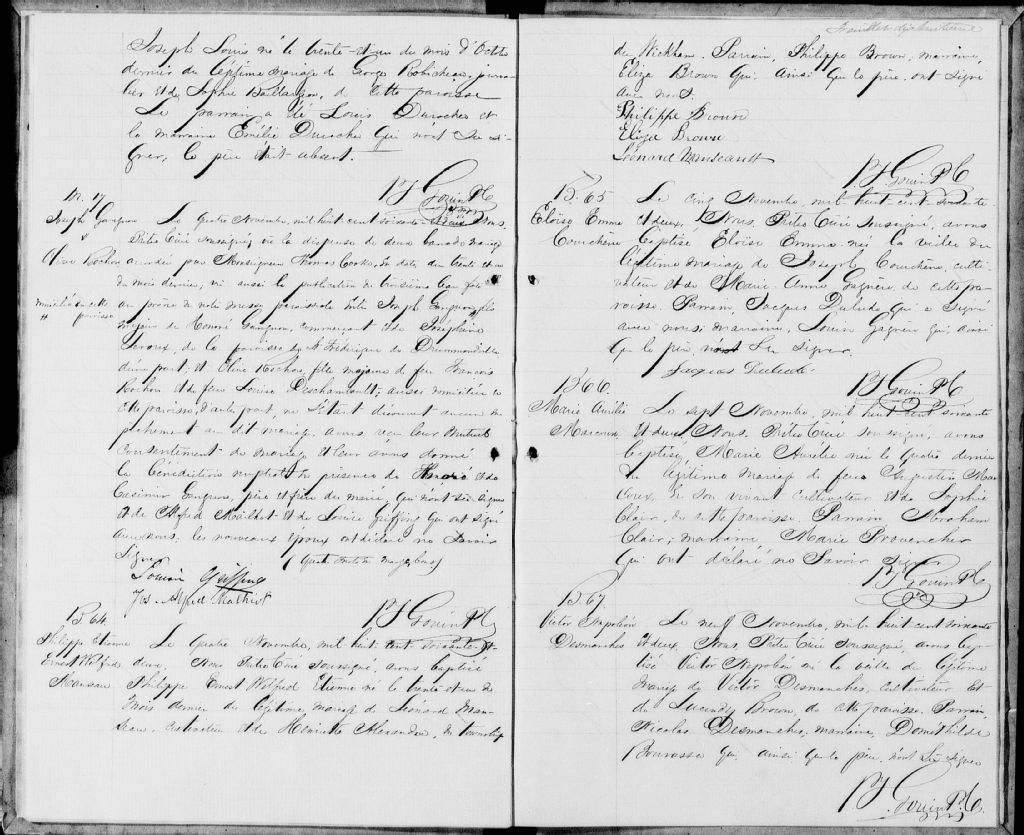 Joseph Louis né le trente-et-un du mois d'Octobre
dernier du légitime mariage de George Robichaud, journa-
lier et de Sophie Baillargeon, de cette paroisse
Le parrain a été Louis Durocher et
la marraine Emélie Durocher qui n'ont su si-
gner, le père était absent.
PJ Gouin Ptre C
M. 17
Joseph Gangeon
&
Olive Rochon
Le quatre Novembre, mil huit cent soixante-deux, Nous,
Prêtre Curé soussigné, vu la dispense de deux bans de mariage
accordée par Monseigneur Thomas Cooke, en date du trente-et-un
du mois dernier, vu aussi la publication du troisième ban faite
au prône de notre messe paroissiale entre Joseph fils
majeur de Honoré commerçant et de Josephine
de la paroisse de St Frédérique de Drummondville
d'une part; et Olive Rochon, fille majeure de feu François
Rochon et de feue Louise Deschamault; aussi domiciliée en
cette paroisse, d'autre part, ne s'étant découvert aucun em-
pêchement au dit mariage, avons reçu leur mutuel
consentement de mariage et leur avons donné
la bénédiction nuptiale en présence de Honoré et de
Casimir père et frère du marié, qui n'ont su signer
et de Alfred Mailhot et de Louise Griffing qui ont signé
avec nous. les nouveaux époux ont déclaré ne savoir
signer (quatre mots en marge bons)
Louisa Griffing
Jos. Alfred Mailhot
PJ Gouin Ptre C
B. 64
Philippe Etienne
Ernest Wilfred
Manseau
Le quatre Novembre, mil huit cent soixante-et-
deux, Nous Prêtre Curé soussigné, avons baptisé
Philippe Ernest Wilfred Etienne né le trente-et-un du
mois dernier du légitime mariage de Léonard Man-
seau, cultivateur et de Henriette Alexander, du township
de Wickham. Parrain, Philippe Brown, marraine,
Eliza Brown qui, ainsi que le père, ont signé
avec nous.
Philippe Brown
Eliza Brown
Léonard Manseault
PJ Gouin Ptre C
B. 65
Eloïse Emma
Courchène
Le cinq Novembre, mil huit cent soixante-
et-deux, Nous, Prêtre Curé soussigné, avons
baptisé Eloïse Emma née la veille du
légitime mariage de Joseph Courchène, culti-
vateur et de Marie Anne Gagnon de cette pa-
roisse. Parrain, Jacques Dulude qui a signé
avec nous; marraine, Louise Gagnon qui, ainsi
que le père, n'ont su signer.
Jacques Dulude
PJ Gouin Ptre C
B. 66
Marie Aurélie
Marcoux
Le sept Novembre, mil huit cent soixante
et deux, Nous, Prêtre Curé soussigné, avons
baptisé Marie Aurélie née le quatre dernier
du légitime mariage de feu Augustin Mar-
coux, en son vivant cultivateur et de Sophie
Clair, de cette paroisse. Parrain Abraham
Clair; marraine, Marie Provencher
qui ont déclaré ne savoir signer
PJ Gouin Ptre C
B. 67
Victor Napoléon
Desmanches
Le neuf Novembre, mil huit cent soixante
et deux, Nous, Prêtre Curé soussigné, avons bap-
tisé Victor Napoléon né la veille du légitime
mariage de Victor Desmanches, cultivateur et
de Lucinde Brown, de cette paroisse. Parrain,
Nicolas Desmanches, marraine, Domithilde
Bourassa qui, ainsi que le père, n'ont su signer
PJ Gouin Ptre C.